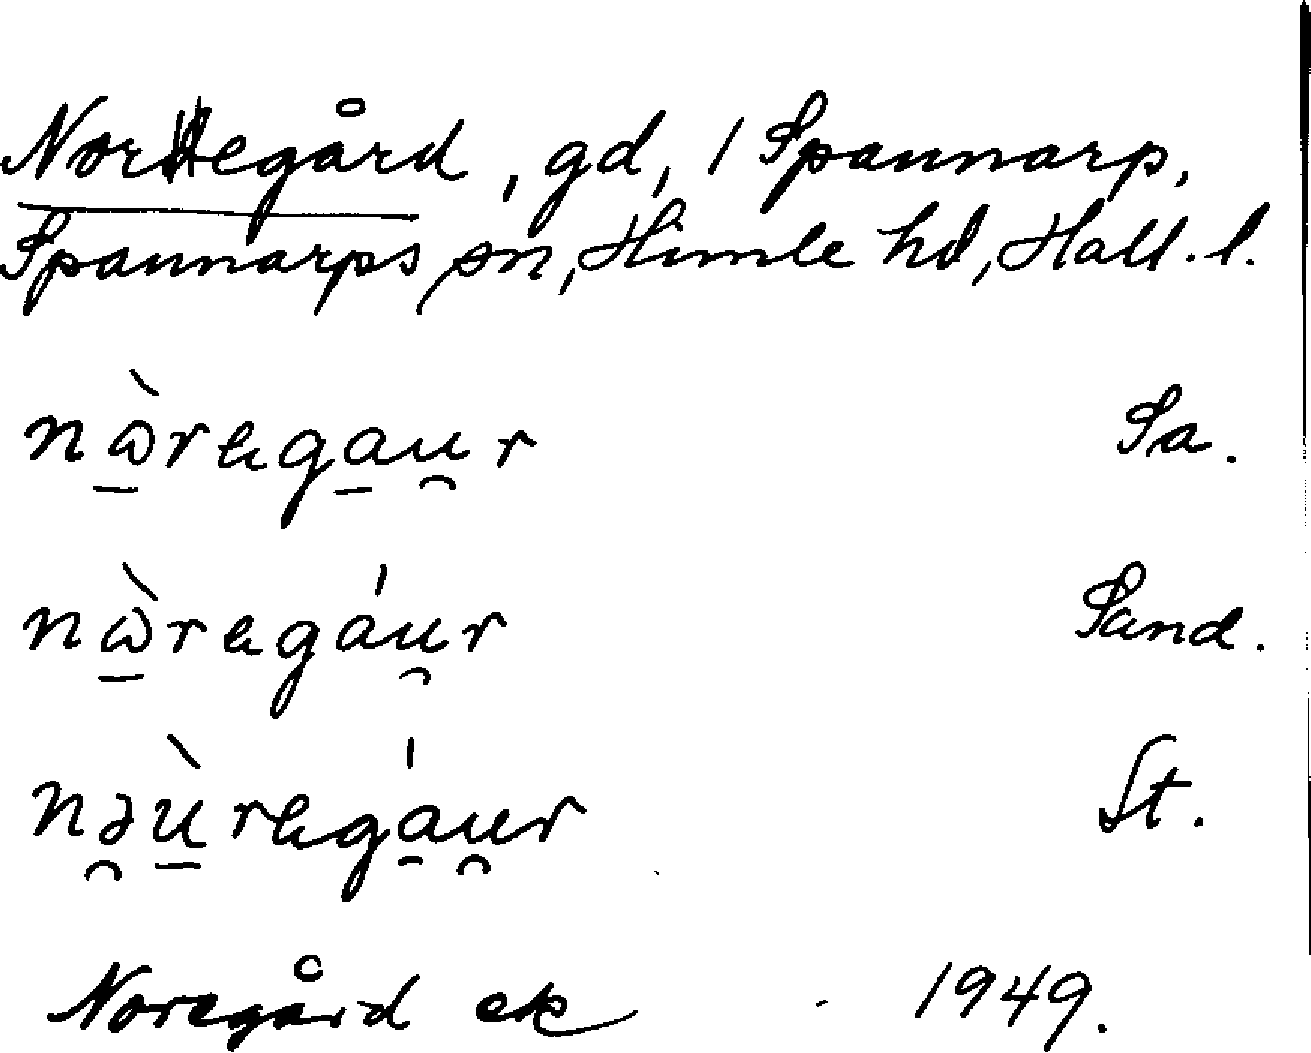 Norregård, gd, 1 Spannarp,
Spannarps sn, Himle hd, Hall. l.
nὼregau̯r Sa.
nὼregáu̯r Sand.
nə̯ùregáu̯r St.
Noregård ek 1949.